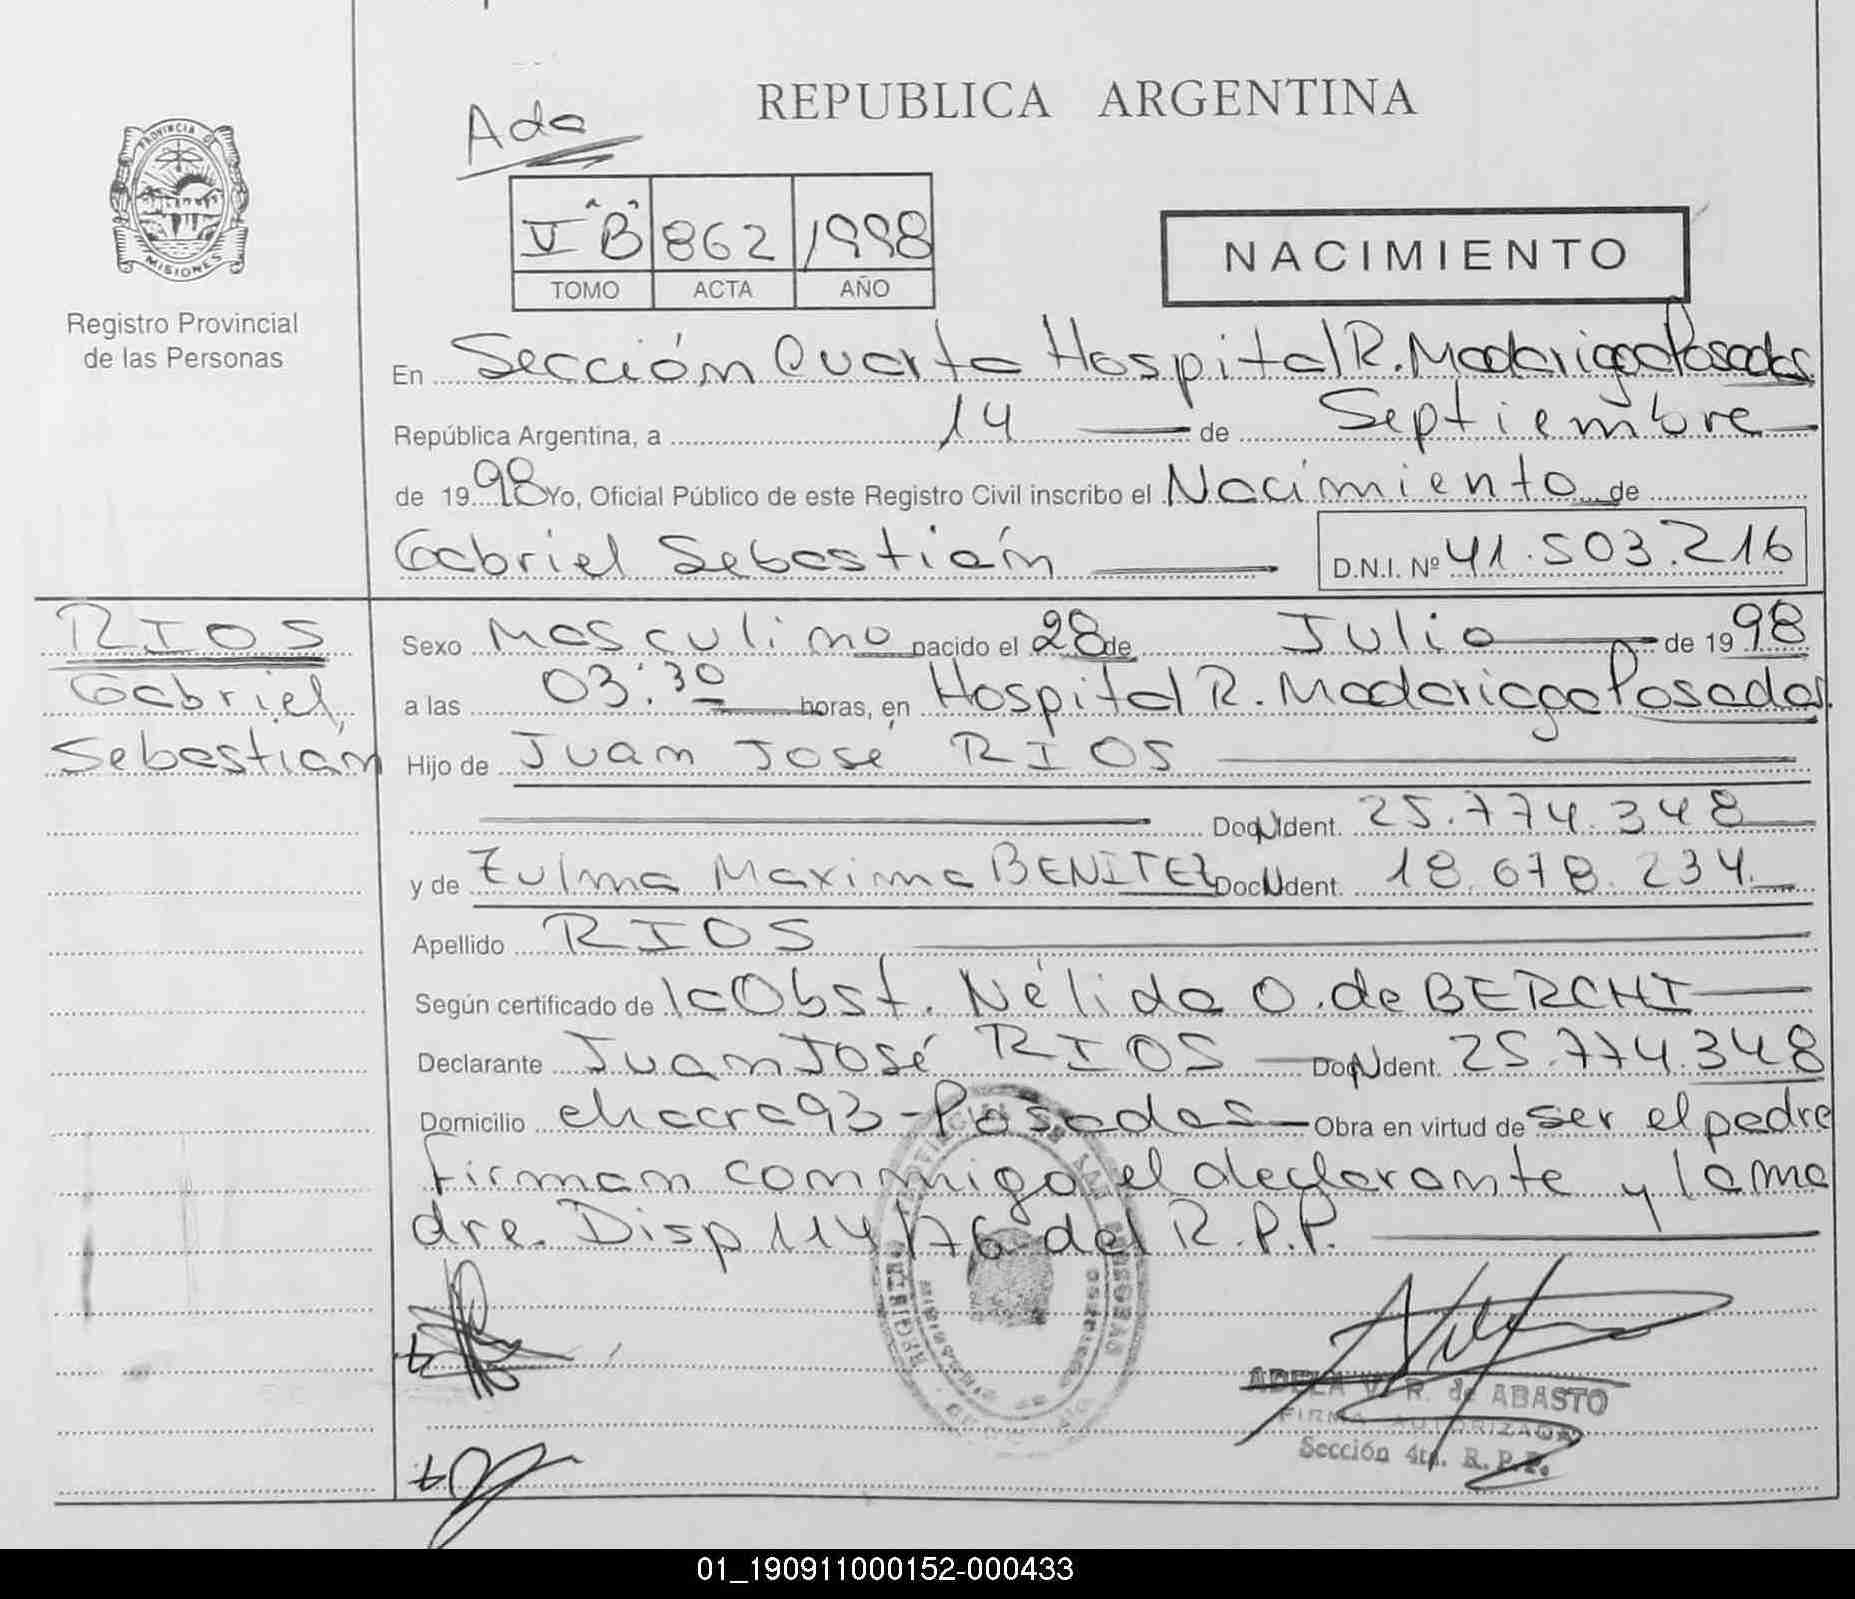 REPUBLICA ARGENTINA
Ada
PROVINCIA DE
MISIONES
V "B" 862 1998
TOMO ACTA AÑO
NACIMIENTO
Registro Provincial
de las Personas
En Sección Cuarta Hospital R. Madariaga Posadas.
República Argentina, a 14 de Septiembre
de 1998 Yo, Oficial Público de este Registro Civil inscribo el Nacimiento de
Gabriel Sebastián D.N.I. Nº 41.503.216
RIOS
Gabriel
Sebastián
Sexo Masculino nacido el 28 de Julio de 1998
a las 03:30 horas, en Hospital R. Madariaga Posadas.
Hijo de Juan José RIOS
Doc N Ident. 25.774.348
y de Zulma Maxima BENITEZ Doc N Ident. 18.678.234.
Apellido RIOS
Según certificado de la Obst. Nélida O. de BERCHI
Declarante Juan José RIOS Doc N Ident. 25.774.348
Domicilio chacra 93 - Posadas Obra en virtud de ser el padre
firman conmigo el declarante y la ma
dre. Disp 114/76 del R.P.P.
ADELA V. R. de ABASTO
FIRMA AUTORIZADA
Sección 4ta. R. P. P.
01_190911000152-000433